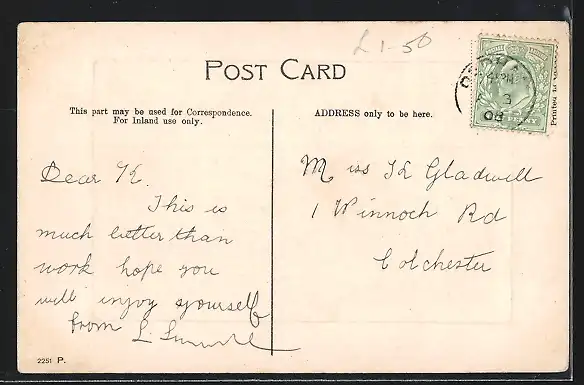 £1-50
POST CARD
This part may be used for Correspondence.
For Inland use only.
ADDRESS only to be here.
Dear K.
This is
much better than
work hope you
will enjoy yourself
from L.
Miss K Gladwell
1 Winnoch Rd
Colchester
08
2251 P.
Printed